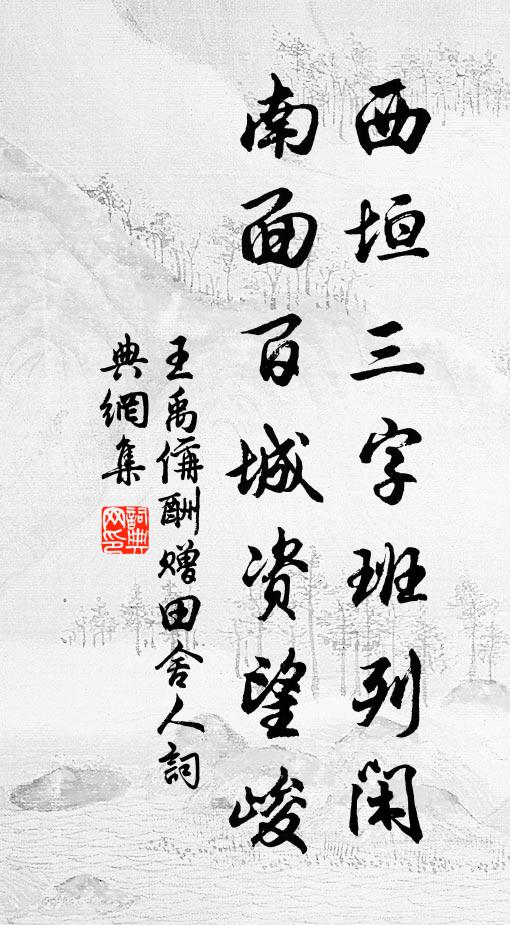 西垣三字班列闲
南面百城资望峻
王禹偁酬赠田舍人詞
典網集
詞典网印